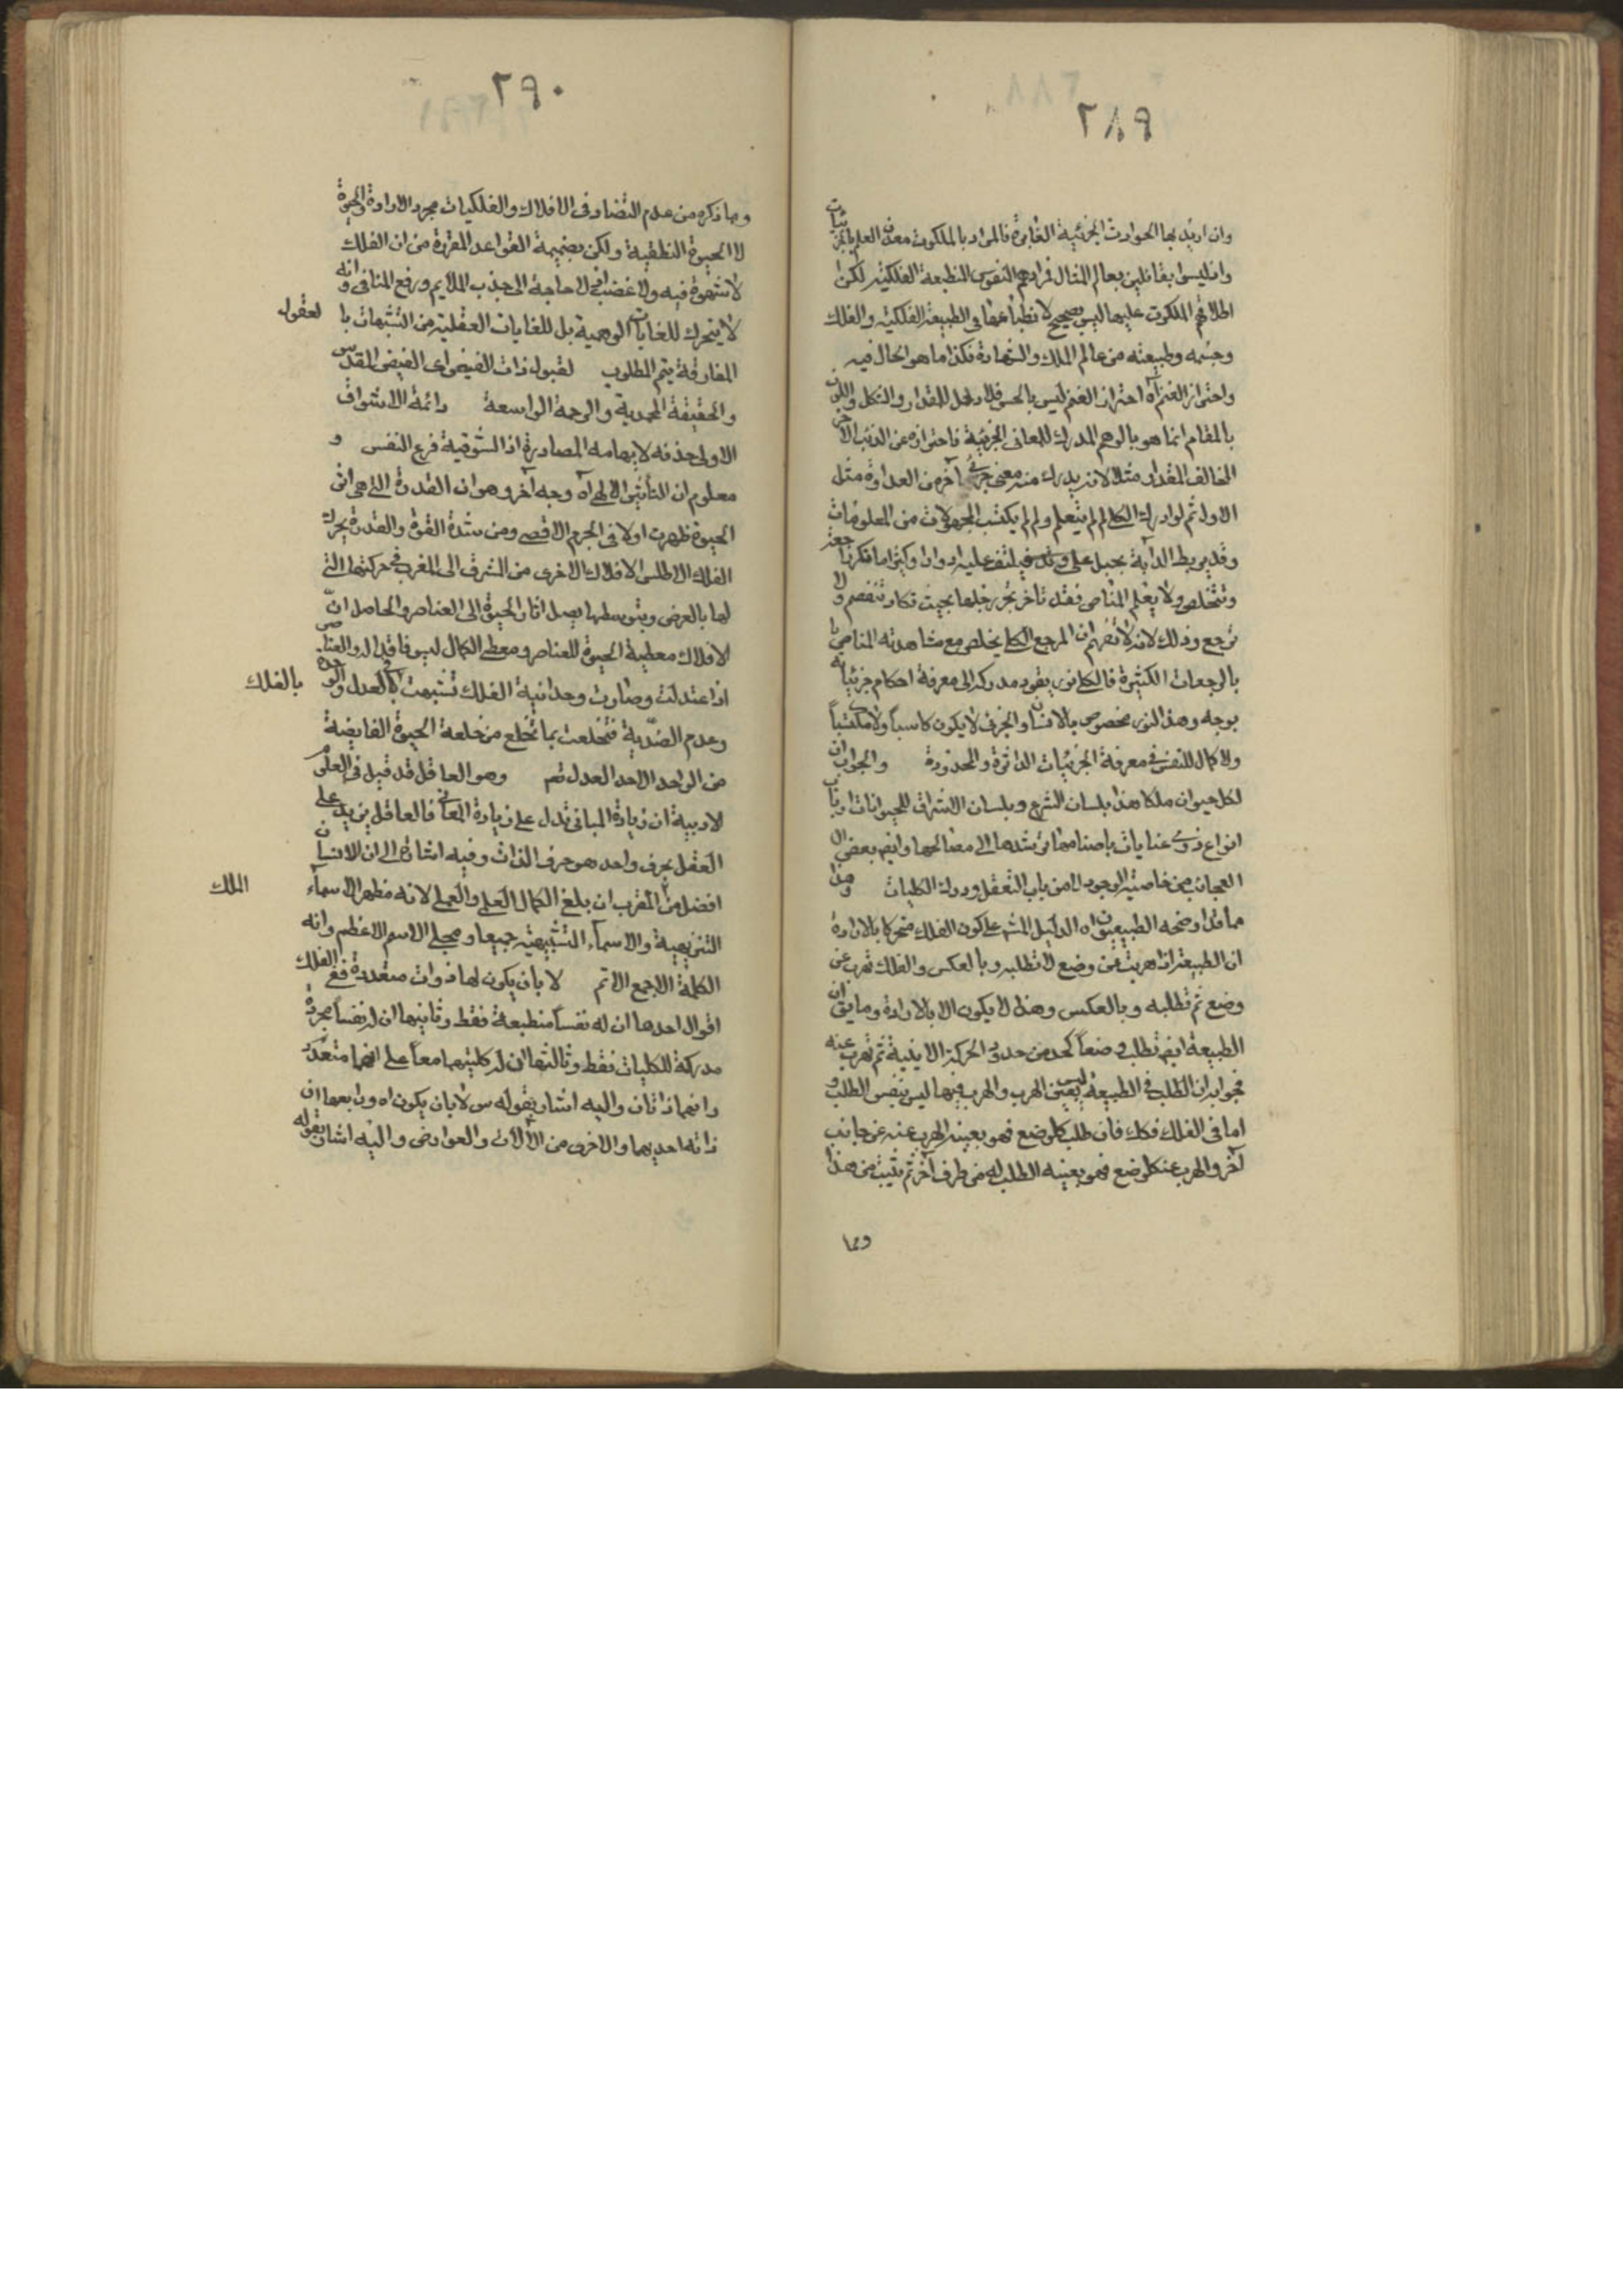 ٢٨٩
وان اريد بها الحوادث الجزئية الغابرة فالمراد بالملكوت معدن العلم بالجزئيات
واذ ليسوا بقائلين بعالم المثال فمرادهم النفوس المنطبعة الفلكية لكن
اطلاقهم الملكوت عليها ليس بصحيح لانطباعها في الطبيعة الفلكية والفلك
وجسمه وطبيعته من عالم الملك والشهادة فكذا ما هو الحال فيه
واحتراز الغنم آه احتراز الغنم ليس بالحس فلا دخل للمقدار والشكل واللون
بالمقام انما هو بالوهم المدرك للمعاني الجزئية فاحترازه عن الذئب الآخر
المخالف المقدار مثلا لانه يدرك منه معنى جزئي آخر من العداوة مثل
الاول ثم لو ادرك الكلي لم لم يتعلم ولم لم يكتسب المجهولات من المعلومات
وقد يربط الدابة بحبل على وتد فيلتف عليه ادوارا وكثيرا ما
وتتخلص ولا يعلم المناص فقد تأخر بجر رجلها بحيث تكاد تنفصم ولا
ترجع وذلك لانه لا تفهم ان المرجع الكلي يخلص مع مشاهدته المناص
بالرجعات الكثيرة فالكلي نور يقود مدركه الى معرفة احكام جزئياته
بوجه وهذا النور مخصوص بالانسان والجزئي لا يكون كاسبا ولا مكتسبا
ولا كمال للنفس في معرفة الجزئيات الداثرة والمحدودة والجواب ان
لكل حيوان ملكا هذا بلسان الشرع وبلسان الاشراق للحيوانات ارباب
انواع ذوى عنايات باصنامها يرشدها الى مصالحها وايضا بعض ال
العجائب من خاصية الوجود لا من باب التعقل ودرك الكليات وهذا
مما قد اوضحه الطبيعيون اه الدليل المشهور على كون الفلك متحركا بالارادة
ان الطبيعة اذا هربت عن وضع لا تطلبه وبالعكس والفلك تهرب عن
وضع ثم تطلبه وبالعكس وهذا لا يكون الا بالارادة وما يقال ان
الطبيعة ايضا تطلب وضعا كحد من حدود الحركة الاينية ثم تهرب عنه
فجوابه ان الطلب في الطبيعة ليس بعين الهرب والهرب فيها ليس بنفس الطلب و
اما في الفلك فكك فان طلب كل وضع فهو بعينه الهرب عنه عن جانب
آخر والهرب عن كل وضع فهو بعينه الطلب له من طرف آخر ثم يثبت من هذا
وما
٢٩٠
وما ذكره من عدم التضاد في الافلاك والفلكيات مجرد الارادة والحيوة
لا الحيوة النطقية ولكن بضميمة القواعد المقررة من ان الفلك
لا شهوة فيه ولا غضب اذ لا حاجة الى جذب الملايم ورفع المنافي وانه
لا يتحرك للغايات الوهمية بل للغايات العقلية من التشبهات با لعقول
المفارقة يتم المطلوب لقبول ذات الفيض اى الفيض المقدس
والحقيقة المحمدية والرحمة الواسعة دائمة الاشواق
الاولى حذفه لايهامه المصادرة اذ الشوقية فرع النفس و
معلوم ان التأثير الالهي آه وجه آخر وهو ان القدرة التي هي اثر
الحيوة ظهرت اولا في الجرم الاقصى ومن شدة القوة والقدرة يحرك
الفلك الاطلس الافلاك الاخرى من الشرق الى المغرب في حركتها التي
لها بالعرض وبتوسطها يصل اثار الحيوة الى العناصر والحاصل ان
الافلاك معطية الحيوة للعناصر ومعطي الكمال ليس فاقدا له والعناصر
اذا اعتدلت وصارت وحدانية الفلك تشبهت بالفلك في العدل والوحدة
وعدم الضدية فتخلعت بما تخلع من خلعة الحيوة الفايضة
من الواحد الاحد العدل ثم وهو العاقل قد قيل في العلوم
الادبية ان زيادة المباني تدل على زيادة المعاني فالعاقل يزيد على
العقل بحرف واحد هو حرف الذات وفيه اشارة الى ان الانسان
افضل من الملك المقرب ان بلغ الكمال العلمي والعملي لانه مظهر الاسماء
التنزيهية والاسماء التشبيهية جميعا ومجلى الاسم الاعظم وانه
الكلمة الاجمع الاتم لا بان يكون لها ذوات متعددة ففي الفلك
اقوال احدها ان له نفسا منطبعة فقط وثانيها ان له نفسا مجردة
مدركة للكليات فقط وثالثها ان له كلتيهما معا على انهما متعدد
وانهما ذاتان واليه اشار بقوله س لا بان يكون اه ورابعها ان
ذاته احديهما والاخرى من الآلات والعوارض واليه اشار بقوله